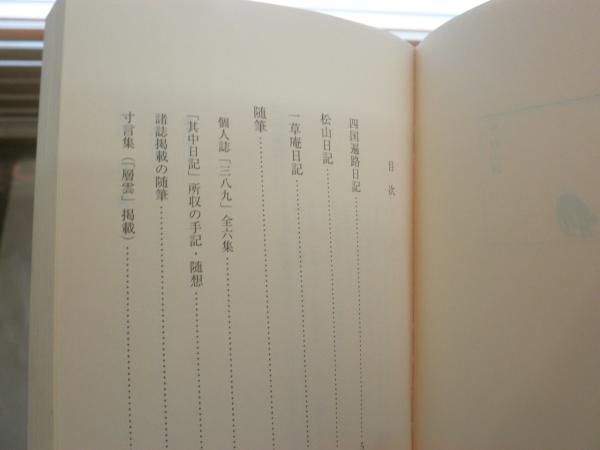 目次
四国遍路日記
松山日記
一草庵日記
随筆
個人誌「三八九」全六集
「其中日記」所収の手記・随想
諸誌掲載の随筆
寸言集(「層雲」掲載)